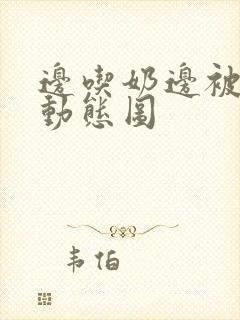 邊喫奶邊被
動態圖
韦伯